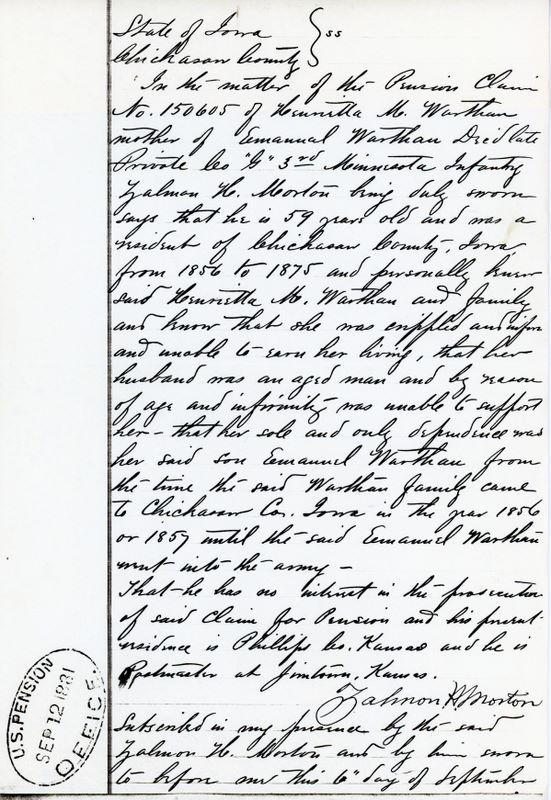 State of Iowa
Chickasaw County } ss
In the matter of the Pension Claim
No. 150605 of Henrietta M. Warthan
mother of Emanual Warthan Dec'd late
Private Co "G" 3rd Minnesota Infantry
Zalmon H. Morton being duly sworn
says that he is 59 years old and was a
resident of Chickasaw County, Iowa,
from 1856 to 1875 and personally knew
said Henrietta M. Warthan and family
and know that she was crippled and infirm
and unable to earn her living, that her
husband was an aged man and by reason
of age and infirmity was unable to support
her - that her sole and only dependence was
her said son Emanuel Warthan from
the time the said Warthan family came
to Chickasaw Co. Iowa in the year 1856
or 1857 until the said Emanuel Warthan
went into the army -
That he has no interest in the prosecution
of said Claim for Pension and his present
residence is Phillips Co. Kansas and he is
Postmaster at Jimtown, Kansas.
Zalmon H. Morton
Subscribed in my presence by the said
Zalmon H. Morton and by him sworn
to before me this 6" day of September
U.S. PENSION
SEP 12 1881
OFFICE